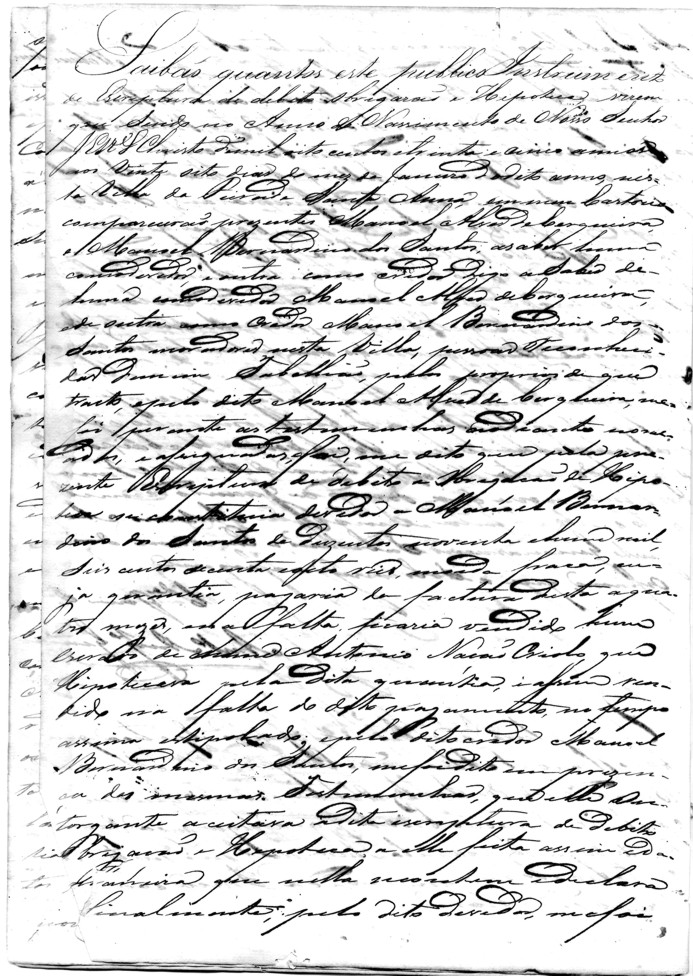 Saibão quantos este publico Instrumento
de Escriptura de debito obrigacaõ e Hipoteca virem
que sendo no Anno do Nascimento de Nosso Senhor
JEZUS Christo de mil oito centos e trinta e cinco annos
aos Vinte oito dias do mez de Janeiro do dito anno, nes-
ta Villa da Feira de Santa Anna, em meu Cartorio
comparecerão prezentes Manoel Alves de Cerqueira,
e Manoel Bernardino dos Santos, a saber hum
como devedor, e outro como credor, digo a saber de
huma como devedor Manoel Alves de Cerqueira,
e de outra como Credor Manoel Bernardino dos
Santos moradores nesta Villa, pessoas reconheci-
das de mim Tabelliaõ, pelos proprios de que
trato, e pelo dito Manoel Alves de Cerqueira, me
foi perante as testemunhas ao diante nome-
adas, e asignadas, me dito que pela pre-
zente Escriptura de debito e obrigacaõ de Hipo-
teca se constituia devedor a Manoel Bernar-
dino dos Santos de Duzentos noventa e hum mil
seis centos secenta e oito reis, moeda fraca, cu-
ja quantia, pagaria da factura desta a qua-
tro mezes, e na falta, ficaria vendido hum
escravo de nome Antonio Nacaõ Criolo, que
Hipotecava pela dita quantia, e assim ven-
dido na falta do dito pagamento, no tempo
assima estipolado, e pelo dito credor Manoel
Bernardino dos Santos, me foi dito em prezen-
ca das mesmas Testemunhas, que elle Ou-
torgante aceitava a dita escriptura de Debito
Obrigacaõ e Hipoteca a elle feita assim e da
maneira que nella se contem e declara
Finalmente, pelo dito devedor, me foi